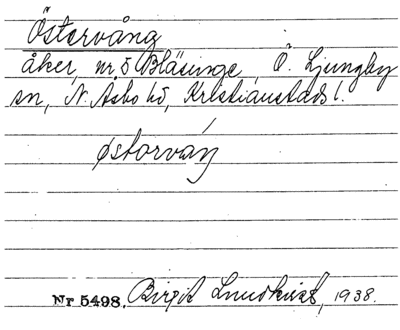 Östervång
åker, nr 5 Bläsinge, Ö. Ljungby
sn, N. Åsbo hd, Kristianstads l.
østorváŋ
Nr 5498. Birgit Lundkvist, 1938.